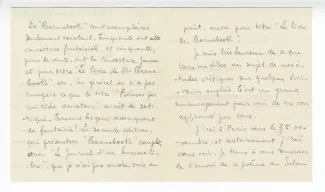 De "Barnabooth" cent exemplaires
seulement existent. Cinquante ont une
couverture fantaisiste, et cinquante,
pour la vente, ont la couverture jaune
et pour titre: Le livre de Mr Barna-
booth". En général on n'a pas
compris que le titre "Poèmes par
un riche amateur" avait de sati-
rique.
de fantaisie. La seconde édition,
qui présentera "Barnabooth" complet,
avec "Le Journal d'un homme li-
bre" que je n'ai pas encore mis au
point, aura pour titre "Le livre
de Barnabooth".
Je suis très heureux de ce que
vous me dites au sujet de mes é-
tudes critiques sur quelques écri-
vains anglais. C'est un grand
encouragement pour moi de ne vous
pas
J'irai à Paris vers le 25
et certainement, j'irai
vous voir. Je tiens à vous remercier
de l'envoi de ce poème au Salon